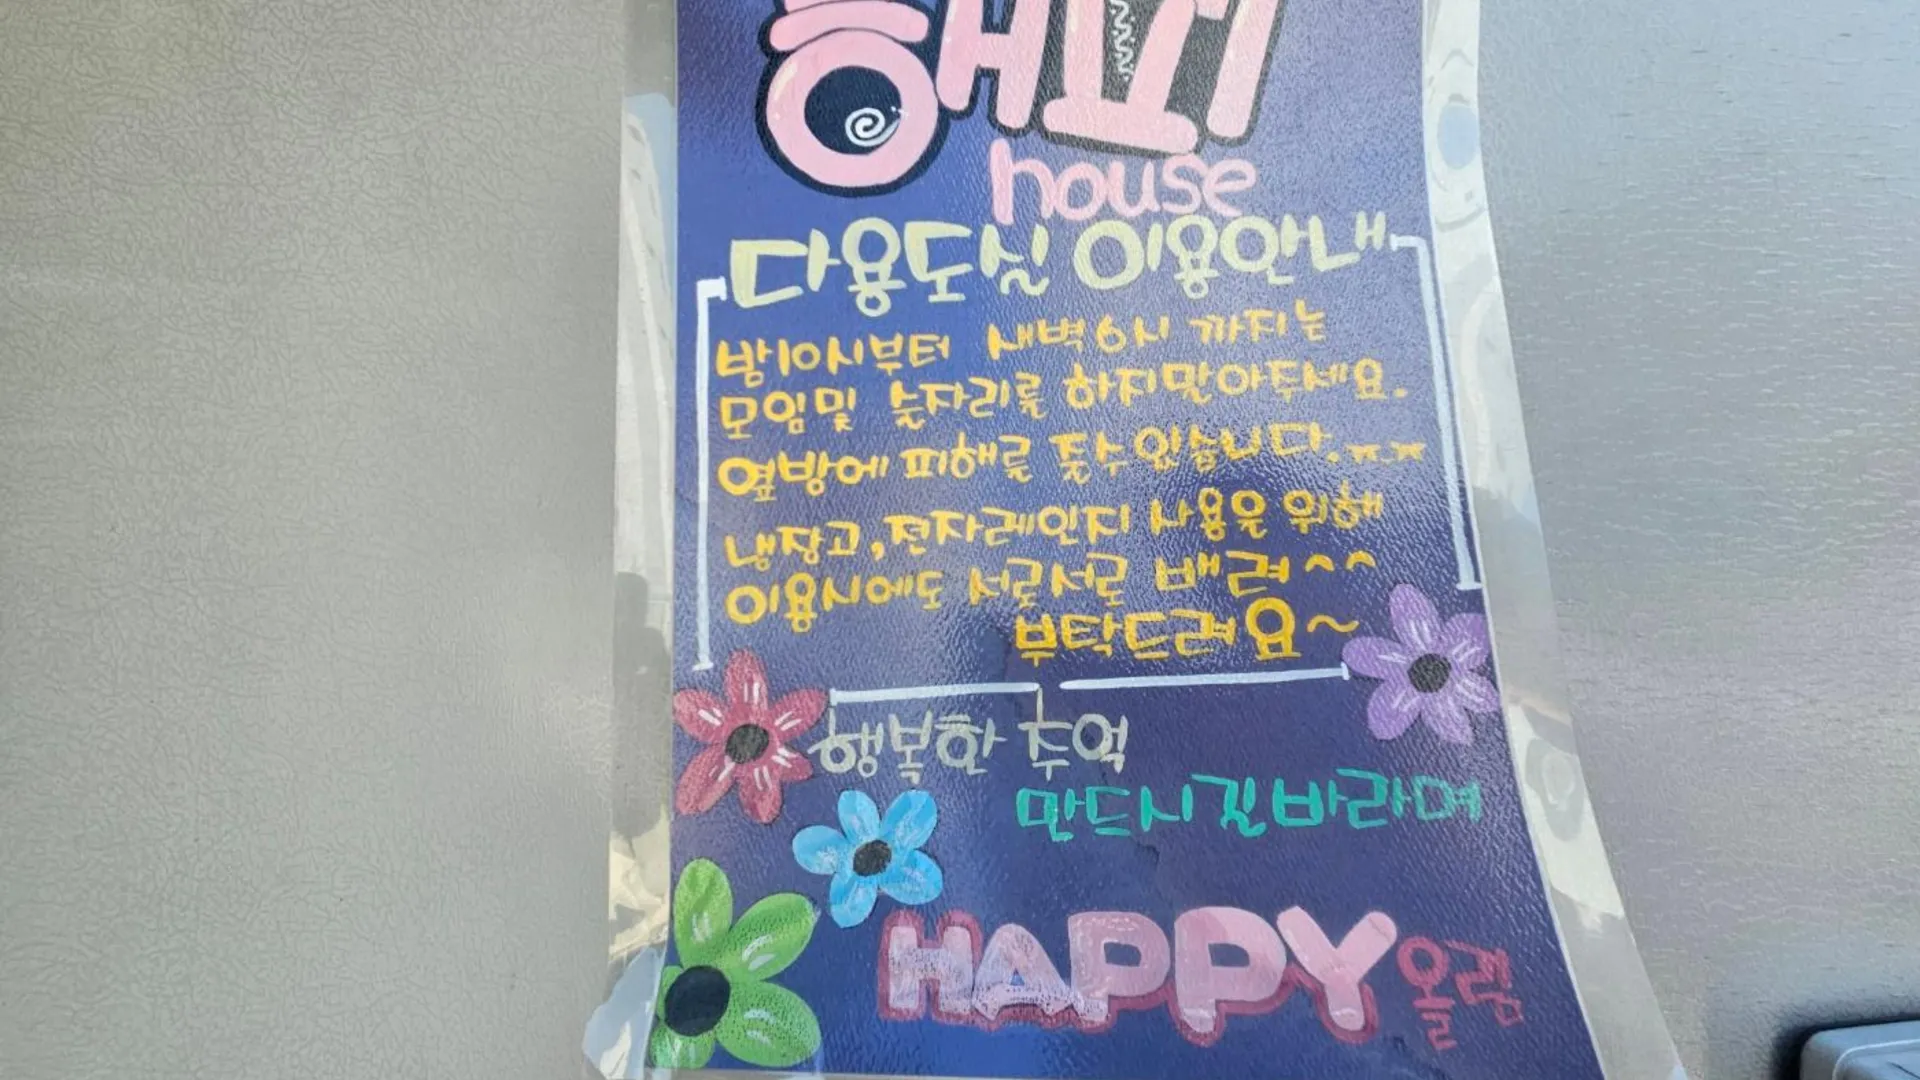 해피
house
다용도실 이용안내
밤10시부터 새벽6시 까지는
모임및 술자리를 하지말아주세요.
옆방에 피해를 줄수있습니다.ㅠ.ㅠ
냉장고,전자레인지 사용을 위해
이용시에도 서로서로 배려^^
부탁드려요~
행복한 추억
만드시길바라며
HAPPY올림